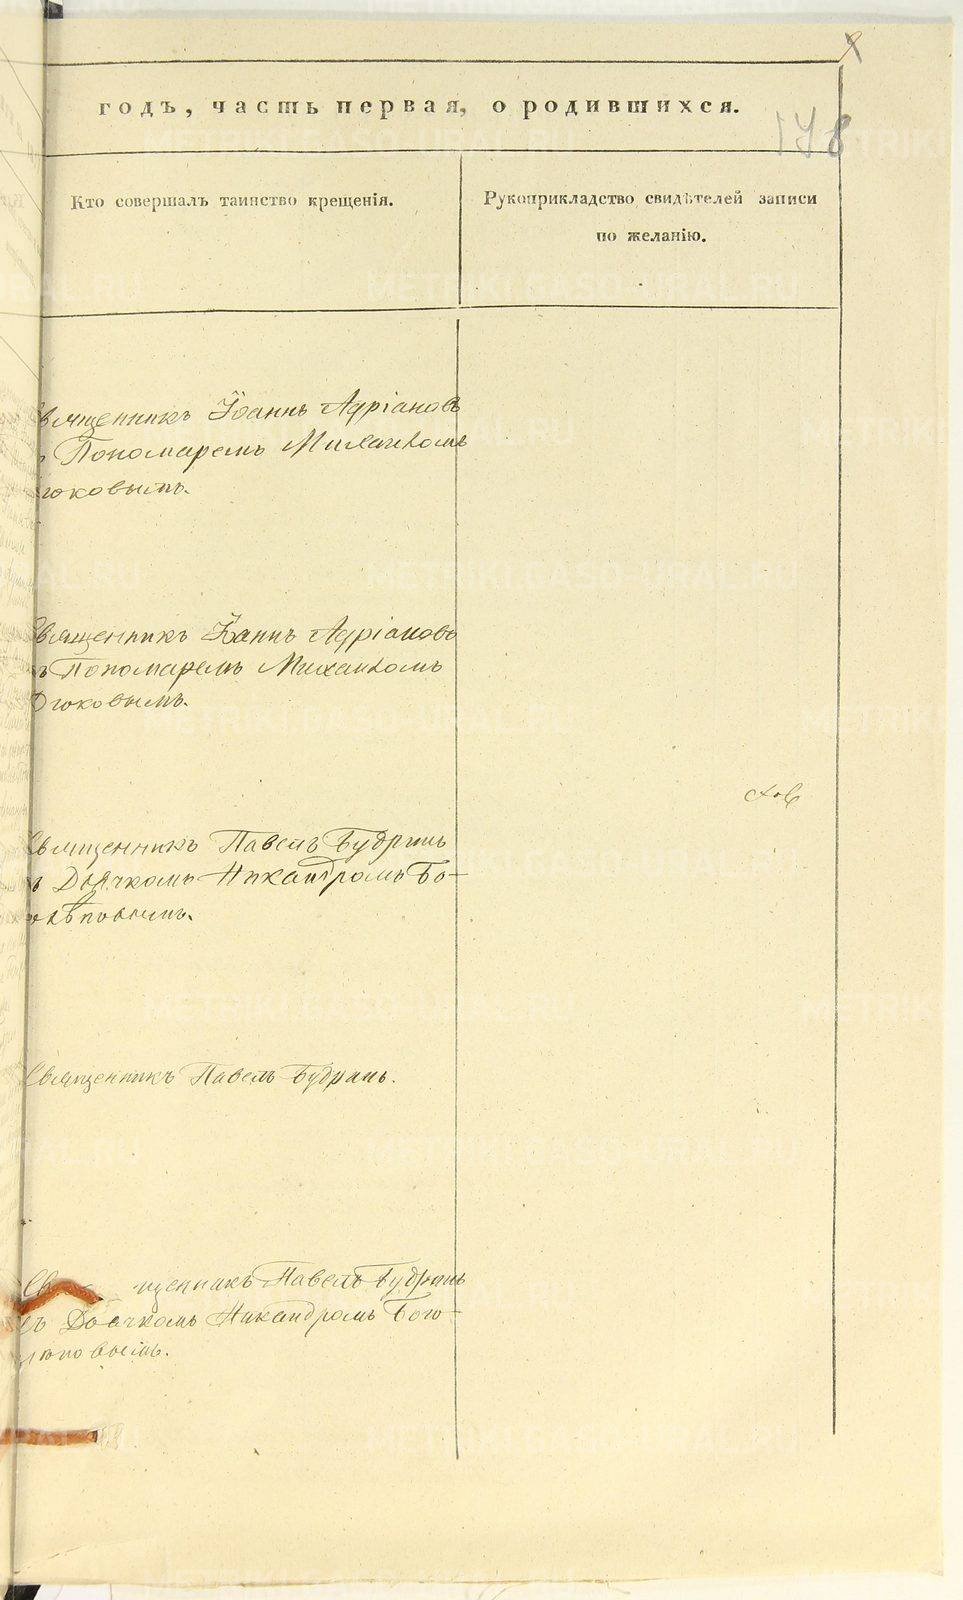 годъ, часть первая, о родившихся.
178
Кто совершалъ таинство крещенія.
Рукоприкладство свидѣтелей записи
по желанію.
Священникъ Іоаннъ Адріановъ
Пономаремъ Михаиломъ
Священникъ Іоаннъ Адріановъ
съ Пономаремъ Михаиломъ
Священникъ Павелъ Будринъ
съ Дьячкомъ Никандромъ Бо-
Священникъ Павелъ Будринъ.
Священникъ Павелъ Будринъ
съ Дьячкомъ Никандромъ Бого-
METRIKI.GASO-URAL.RU